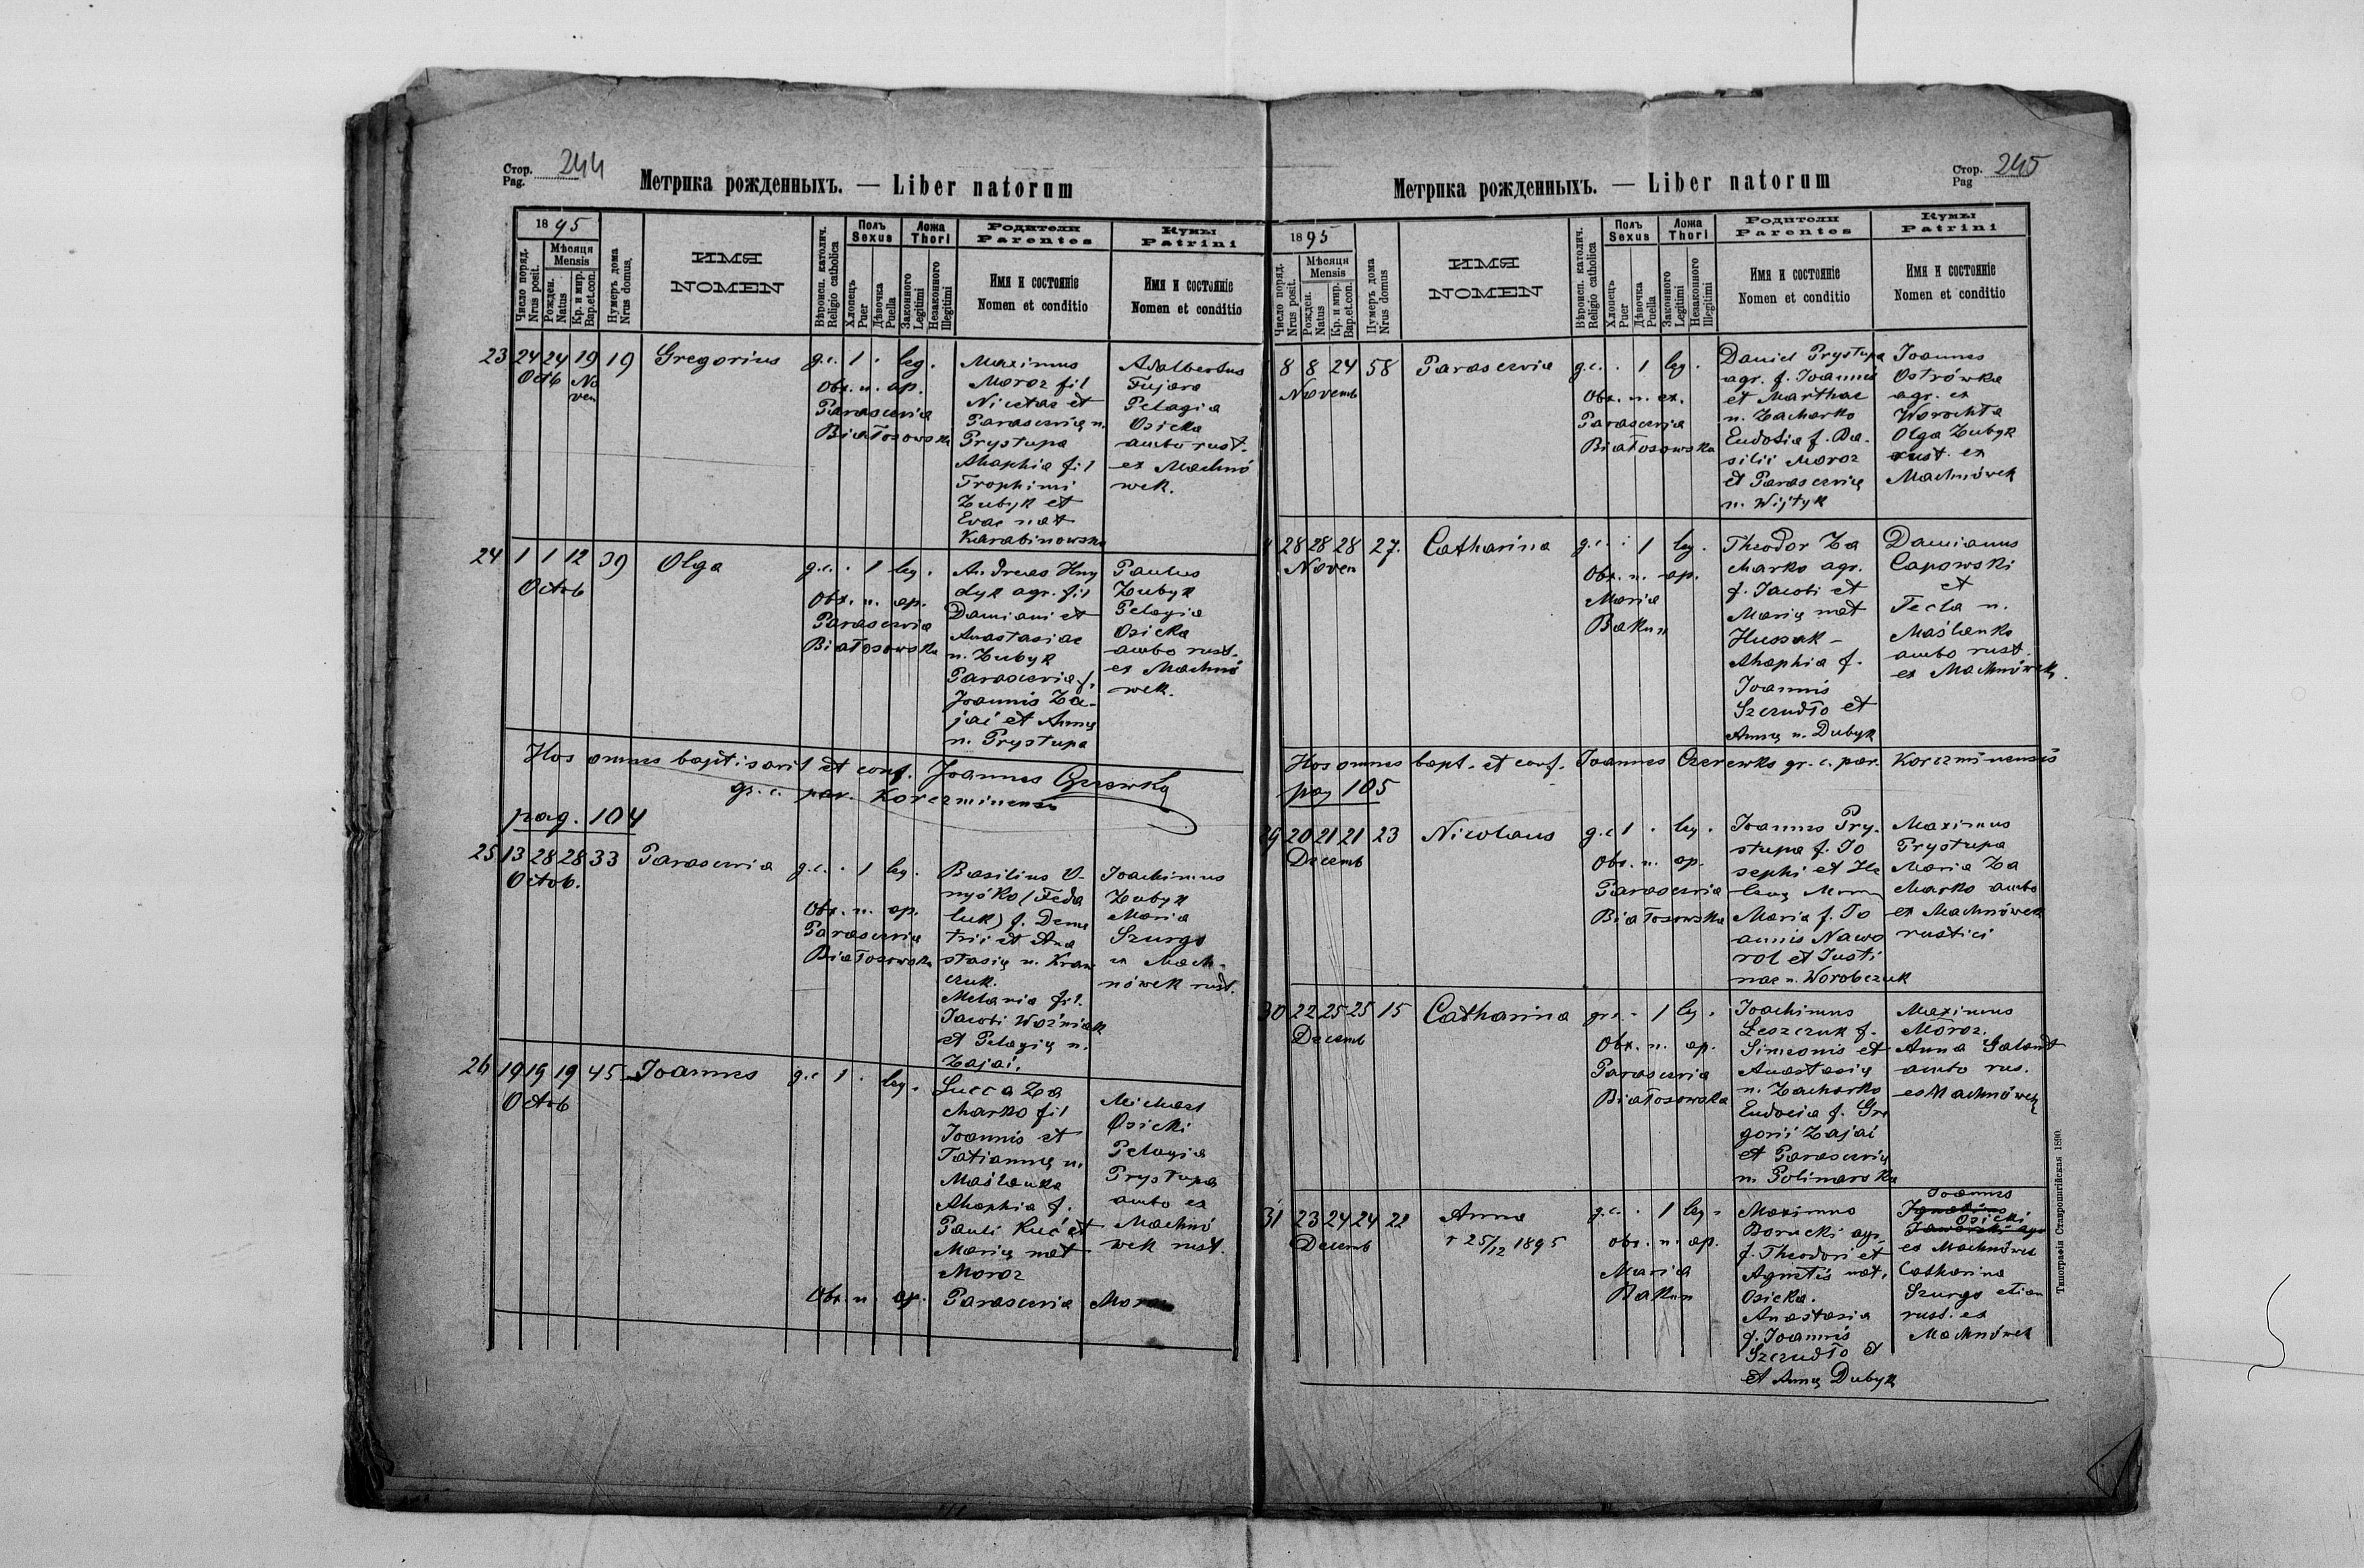 Стор. Pag. 244
Метрика рожденныхъ. — Liber natorum
1895
Число поряд. Nrus posit.
Мѣсяця Mensis
Рожден. Natus
Кр. и мир. Bap.et.con.
Нумеръ дома Nrus domus.
ИМЯ
NOMEN
Вѣроисп. католич. Religio catholica
Полъ Sexus
Хлопецъ Puer
Дѣвочка Puella
Ложа Thori
Законного Legitimi
Незаконного Illegitimi
Родители
Parentes
Имя и состоянiе
Nomen et conditio
Кумы
Patrini
Имя и состоянiе
Nomen et conditio
23 24 24 19 19 Gregorius g.c. 1 . leg.
Octb Noven
Obs. n. ap.
Parascevia
Białosowska
Maximus
Moroz fil
Nicetae et
Parascevię n.
Prystupa
Ahaphia fil
Trophimi
Zubyk et
Evae nat
Karabinowska
Adalbertus
Fujara
Pelagia
Osicka
ambo rust.
ex Machnó
wek.
24 1 1 12 39 Olga g.c. . 1 leg.
Octob
Obs. n. ap.
Parascevia
Białosowska
Andreas Hny
dyk agr. fil
Damiani et
Anastasiae
n. Zubyk
Parascevia f.
Joannis Za-
jać et Annę
n. Prystupa
Paulus
Zubyk
Pelagia
Osicka
ambo rust.
ex Machnó
wek.
Hos omnes baptisavit et conf. Joannes Czerewko
gr. c. par. Korczminensis
pag. 104
25 13 28 28 33 Parascevia g.c. . 1 leg.
Octob.
Obs. n. ap.
Parascevia
Białosowska
Basilius O-
nyśko (Feda
luk) f. Deme
trii et Ana
stasię n. Kraw
czuk.
Melania fil.
Jacobi Woźniak
et Pelagię n.
Zajać.
Joachimus
Zubyk
Maria
Szurgo
ex Mach-
nówek rust.
26 19 19 19 45 Joannes g.c 1 . leg.
Octob
Lucca Za
charko fil
Joannis et
Tatiannę n.
Maślanka
Ahaphia f.
Pauli Kuć et
Marię nat
Moroz
Michael
Osicki
Pelagia
Prystupa
ambo ex
Machnó
wek rust.
Obs. n. ap. Parascevia Moroz
Стор. Pag 245
Метрика рожденныхъ. — Liber natorum
1895
Число поряд. Nrus posit.
Мѣсяця Mensis
Рожден. Natus
Кр. и мир. Bap.et.con.
Нумеръ дома Nrus domus
ИМЯ
NOMEN
Вѣроисп. католич. Religio catholica
Полъ Sexus
Хлопецъ Puer
Дѣвочка Puella
Ложа Thori
Законного Legitimi
Незаконного Illegitimi
Родители
Parentes
Имя и состоянiе
Nomen et conditio
Кумы
Patrini
Имя и состоянiе
Nomen et conditio
8 8 24 58 Parascevia g.c. . 1 leg.
Novemb
Obs. n. ex.
Parascevia
Białosowska
Daniel Prystupa
agr. f. Joannis
et Marthae
n. Zacharko
Eudosia f. Ba-
silii Moroz
et Parascevię
n. Wijtyk
Joannes
Ostrówka
agr. ex
Worochta
Olga Zubyk
rust. ex
Machnówek
28 28 28 27. Catharina g.c. . 1 leg.
Noven
Obs. n. ap.
Maria
Bakun
Theodor Za
charko agr.
f. Jacobi et
Marię nat
Hussak -
Ahaphia f.
Joannis
Szczudło et
Annę n. Dubyk
Damianus
Capowski
et
Tecla n.
Maślanko
ambo rust.
ex Machnówek.
Hos omnes bapt. et conf. Joannes Czerewko gr. c. par. Korczminensis
pag 105
29 20 21 21 23 Nicolaus g.c 1 . leg.
Decemb
Obs. n. ap.
Parascevia
Białosowska
Joannes Pry-
stupa f. Jo
sephi et He
lenę
Maria f. Jo
annis Nawo
rol et Justi
nae n. Worobczuk
Maximus
Prystupa
Maria Za
charko ambo
ex Machnówek
rustici
30 22 25 25 15 Catharina gr. . 1 leg.
Decemb
Obs. n. ap.
Parascevia
Białosowska
Joachimus
Leszczuk f.
Simeonis et
Anastasię
n. Zacharko
Eudocia f. Gre
gorii Zajać
et Parascevię
n. Polinarska
Maximus
Moroz.
Anna Galandt
ambo rus.
ex Machnówek
31 23 24 24 22 Anna g.c. . 1 leg.
Decemb
† 25/12 1895
obs. n. ap.
Maria
Bakun
Maximus
Borucki agr.
f. Theodori et
Agnetis nat.
Osicka.
Anastasia
f. Joannis
Szczudło et
et Annę Dubyk
Joannes
Osicki
ex Machnówek
Catharina
Szurgo etiam
rust. ex
Machnówek
Типографiя Ставропигiйская 1890.